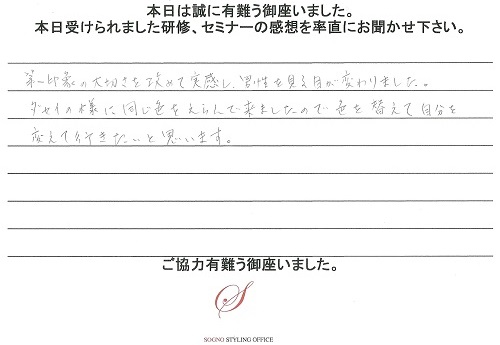 本日は誠に有難う御座いました。
本日受けられました研修、セミナーの感想を率直にお聞かせ下さい。
第一印象の大切さを改めて実感し、男性を見る目が変わりました。
の様に同じ色をえらんで来ましたので色を替えて自分を
変えて行きたいと思います。
ご協力有難う御座いました。
S
SOGNO STYLING OFFICE